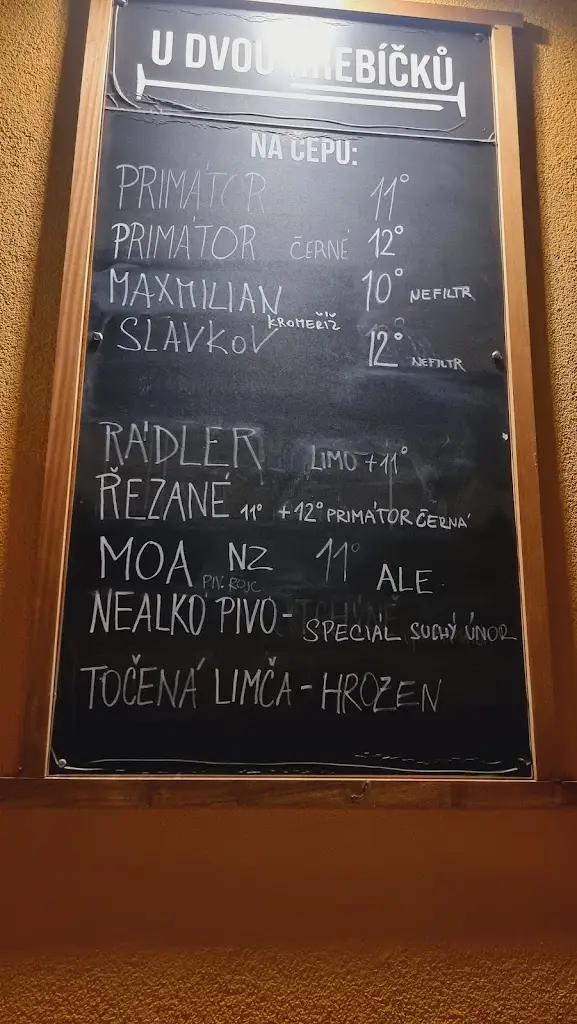 U DVOU HŘEBÍČKŮ
NA ČEPU:
PRIMÁTOR 11°
PRIMÁTOR ČERNÉ 12°
MAXMILIAN 10° NEFILTR
KROMĚŘÍŽ
SLAVKOV 12° NEFILTR
RÁDLER LIMO + 11°
ŘEZANÉ 11° + 12° PRIMÁTOR ČERNÁ
MOA NZ 11° ALE
PIV. ROJC
NEALKO PIVO - SPECIÁL SUCHÝ ÚNOR
TOČENÁ LIMČA - HROZEN